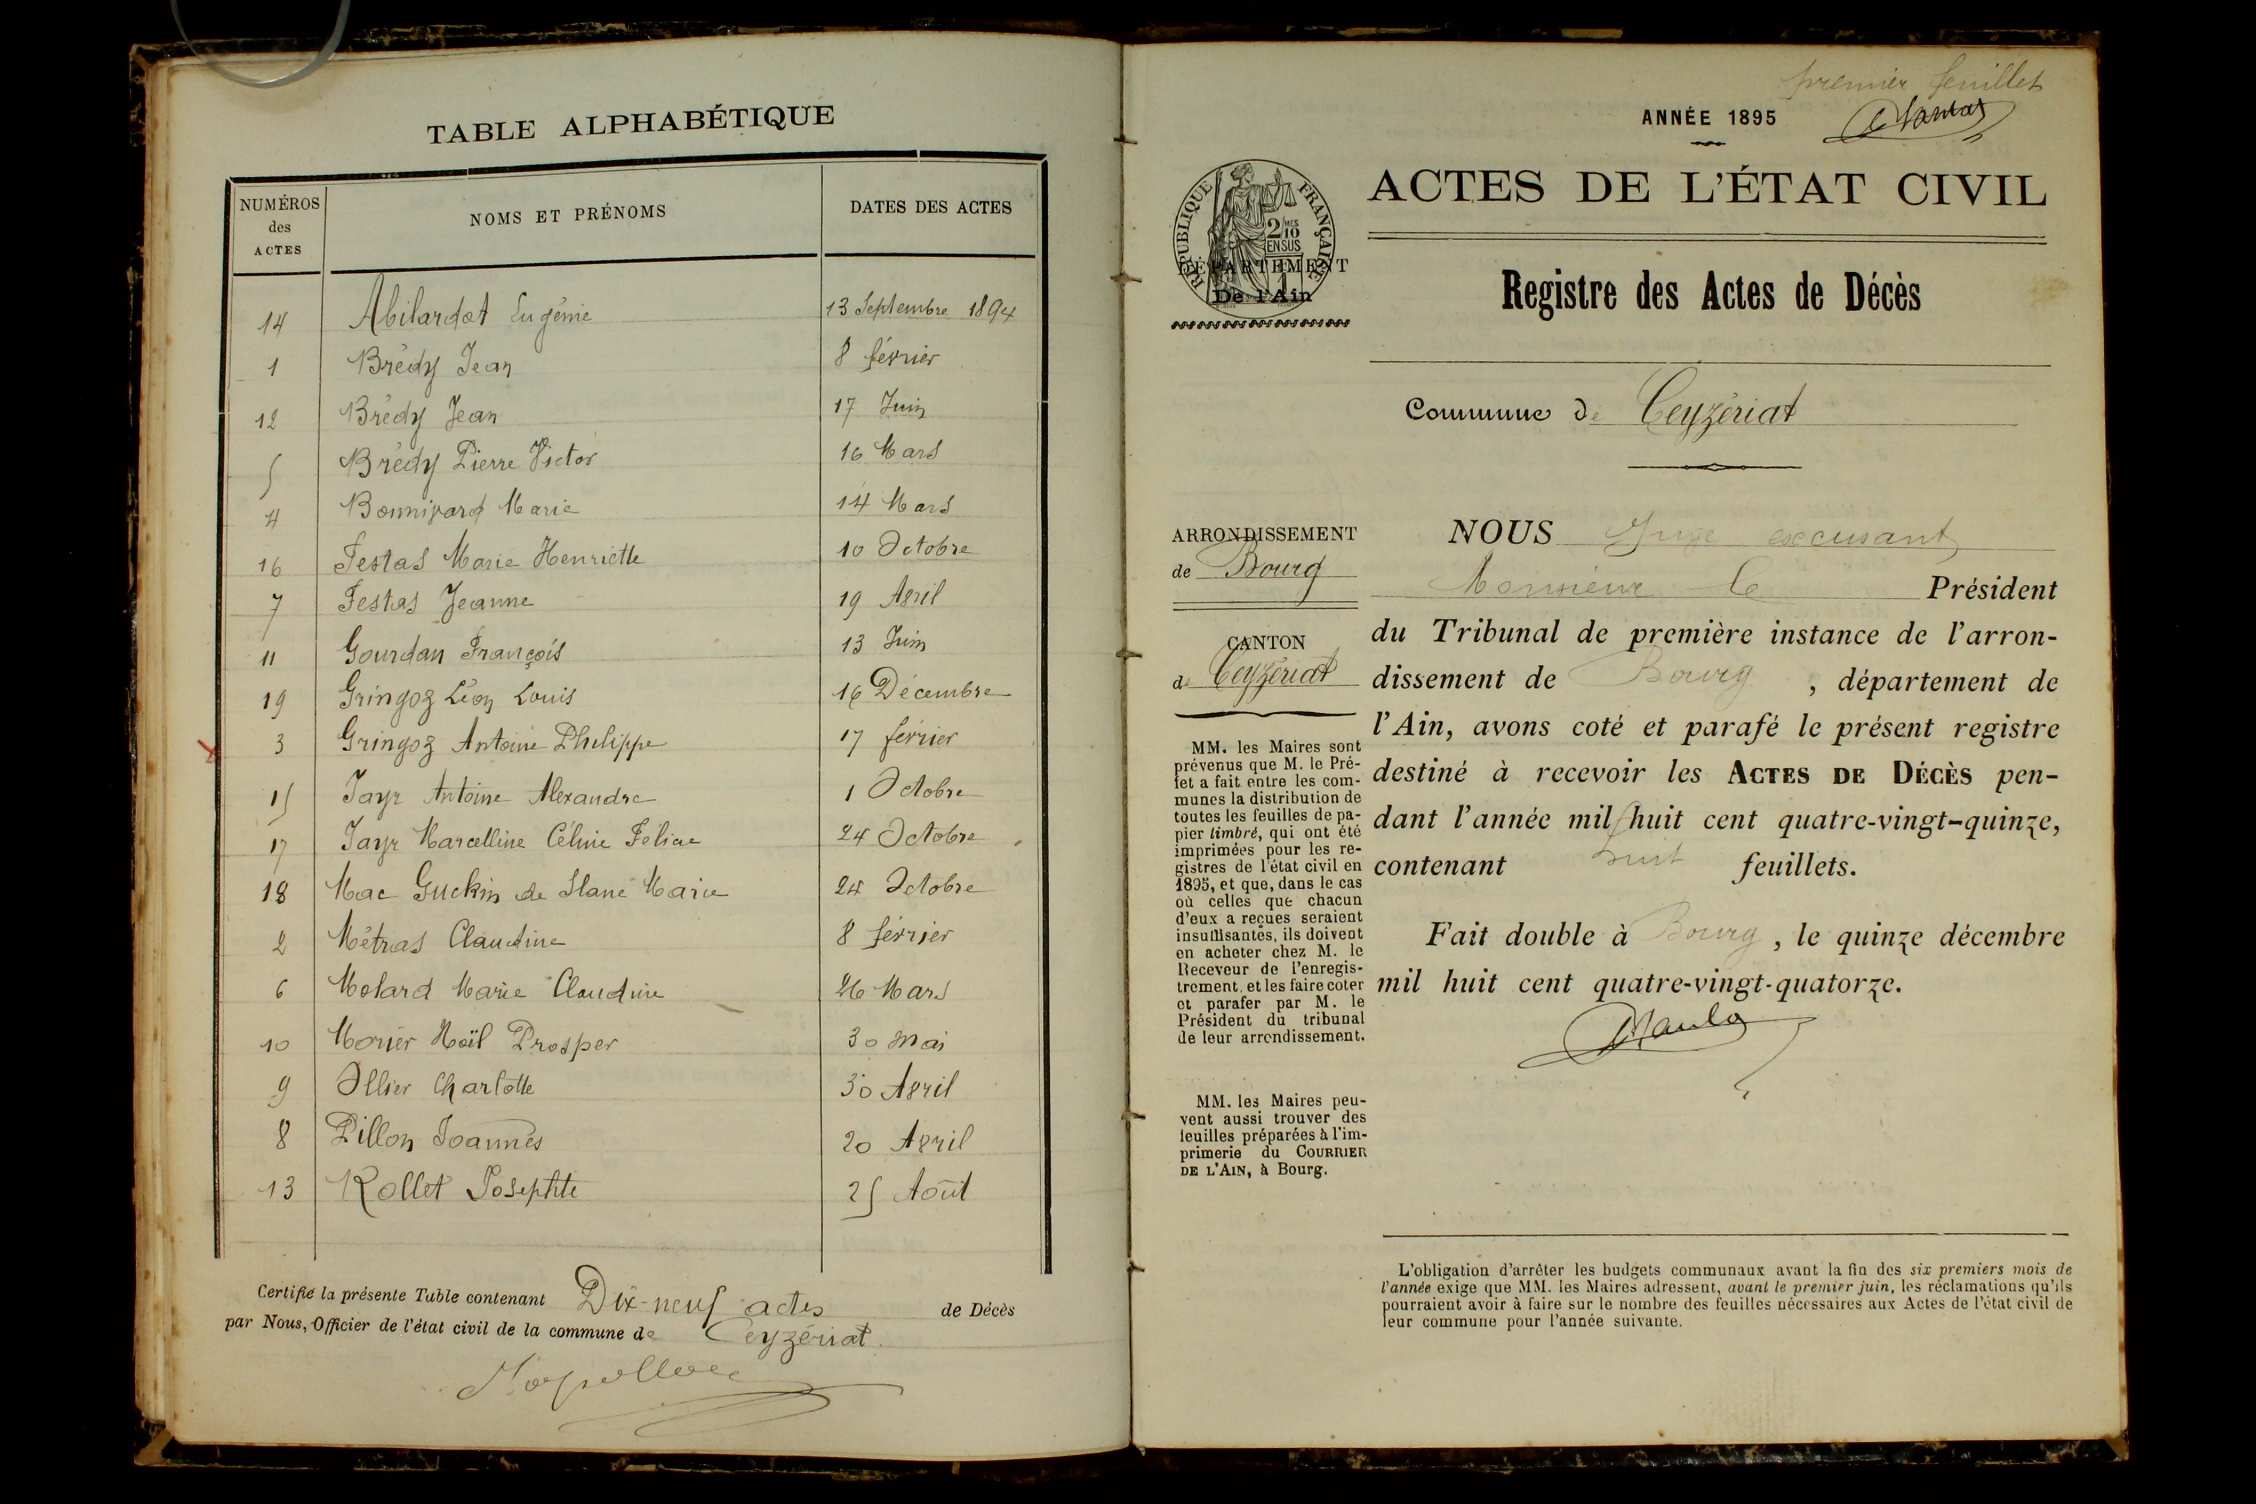 TABLE ALPHABÉTIQUE
NUMÉROS
des
ACTES
NOMS ET PRÉNOMS
DATES DES ACTES
14 Abilardot Eugénie 13 Septembre 1894
1 Brédy Jean 8 février
12 Brédy Jean 17 Juin
5 Brédy Pierre Victor 16 Mars
4 Bonnivard Marie 14 Mars
16 Festas Marie Henriette 10 Octobre
7 Festas Jeanne 19 Avril
11 Gourdan François 13 Juin
19 Gringoz Léon Louis 16 Décembre
3 Gringoz Antoine Philippe 17 février
15 Jayr Antoine Alexandre 1 Octobre
17 Jayr Marcelline Céline Félicie 24 Octobre
18 Mac Guckin de Slane Marie 24 Octobre
2 Métras Claudine 8 février
6 Molard Marie Claudine 26 Mars
10 Morier Noël Prosper 30 mai
9 Ollier Charlotte 30 Avril
8 Pillon Joannès 20 Avril
13 Rollet Josephte 25 Août
Certifié la présente Table contenant Dix-neuf actes de Décès
par Nous, Officier de l'état civil de la commune de Ceyzériat.
premier feuillet
ANNÉE 1895
ACTES DE L'ÉTAT CIVIL
RÉPUBLIQUE FRANÇAISE
2/10 MES
EN SUS
DÉPARTEMENT
De l'Ain
Registre des Actes de Décès
Commune de Ceyzériat
ARRONDISSEMENT
de Bourg
CANTON
de Ceyzériat
MM. les Maires sont
prévenus que M. le Pré-
fet a fait entre les com-
munes la distribution de
toutes les feuilles de pa-
pier timbré, qui ont été
imprimées pour les re-
gistres de l'état civil en
1895, et que, dans le cas
où celles que chacun
d'eux a reçues seraient
insuffisantes, ils doivent
en acheter chez M. le
Receveur de l'enregis-
trement, et les faire coter
et parafer par M. le
Président du tribunal
de leur arrondissement.
MM. les Maires peu-
vent aussi trouver des
feuilles préparées à l'im-
primerie du COURRIER
DE L'AIN, à Bourg.
NOUS Juge excusant
Monsieur le Président
du Tribunal de première instance de l'arron-
dissement de Bourg, département de
l'Ain, avons coté et parafé le présent registre
destiné à recevoir les ACTES DE DÉCÈS pen-
dant l'année mil huit cent quatre-vingt-quinze,
contenant huit feuillets.
Fait double à Bourg, le quinze décembre
mil huit cent quatre-vingt-quatorze.
L'obligation d'arrêter les budgets communaux avant la fin des six premiers mois de
l'année exige que MM. les Maires adressent, avant le premier juin, les réclamations qu'ils
pourraient avoir à faire sur le nombre des feuilles nécessaires aux Actes de l'état civil de
leur commune pour l'année suivante.